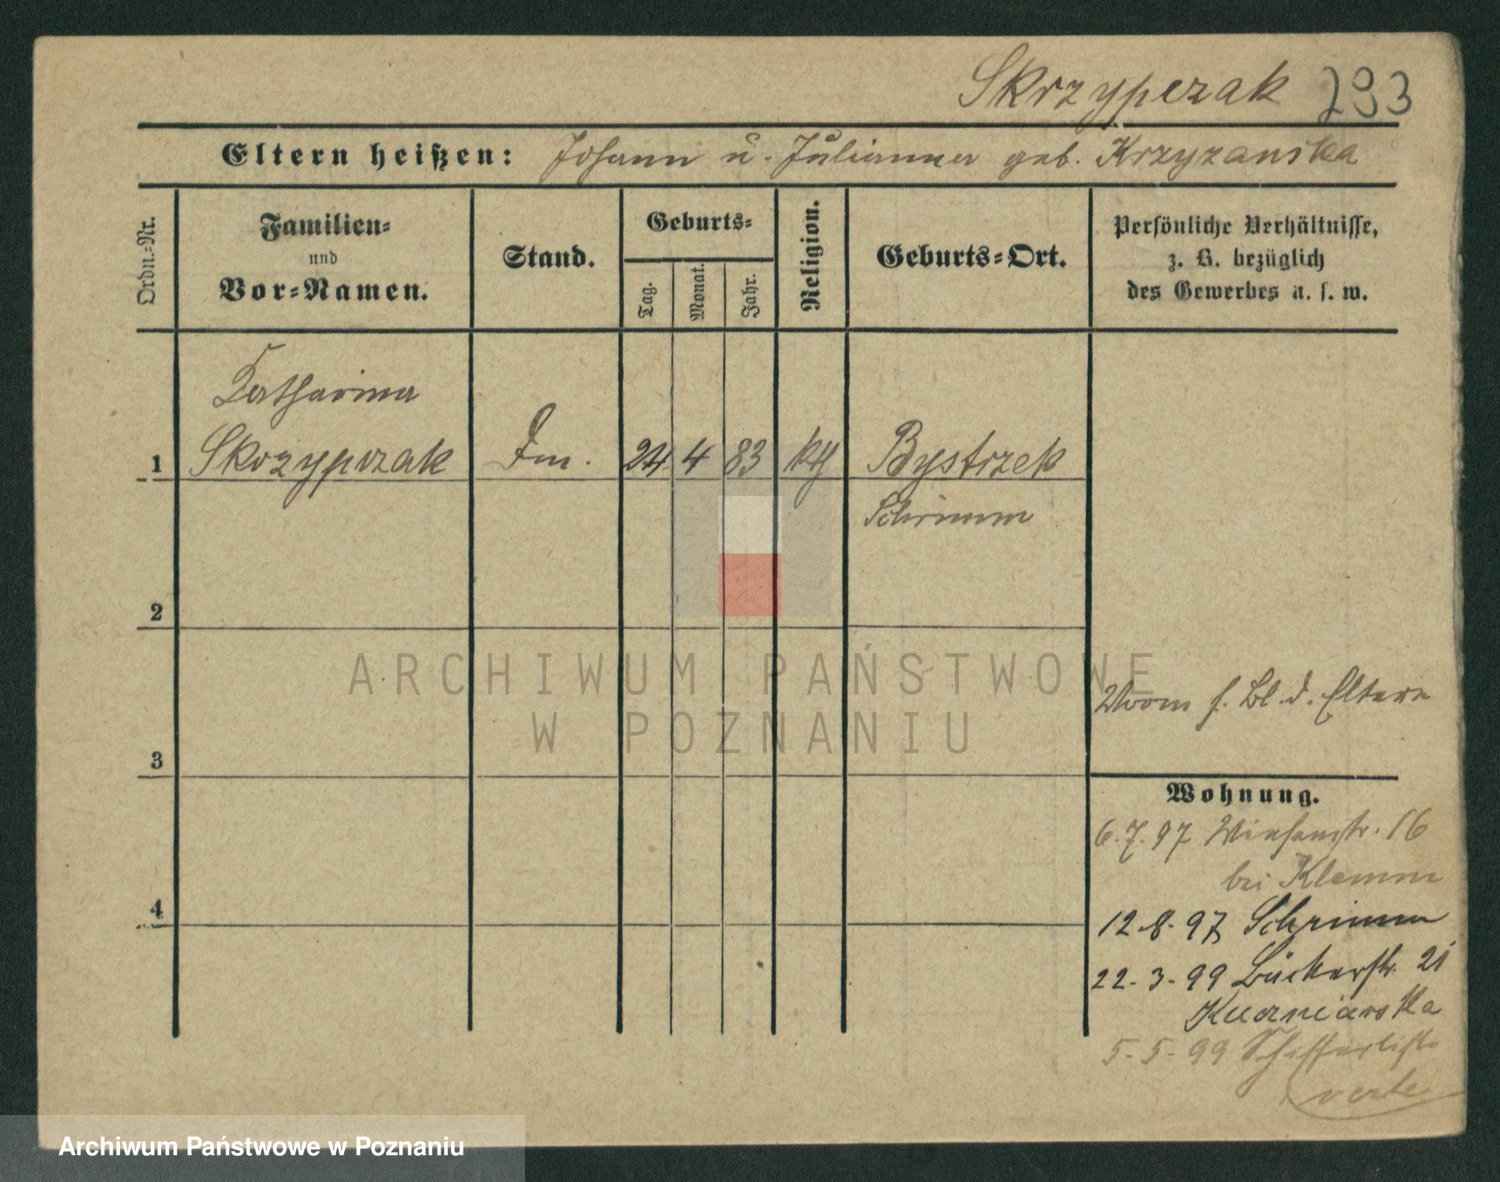 Skrzypczak 293
Eltern heißen: Johann u. Julianna geb. Krzyzanska
Ordn.-Nr.
Familien-
und
Vor-Namen.
Stand.
Geburts-
Tag.
Monat.
Jahr.
Religion.
Geburts-Ort.
Persönliche Verhältnisse,
z. B. bezüglich
des Gewerbes u. s. w.
Katharina
1 Skrzypczak 24 4 83 kth Bystrzek
Schrimm
2
ARCHIWUM PAŃSTWOWE
W POZNANIU
f. Bl. d. Eltern
3
Wohnung.
6.7.97 16
bei Klemm
4
12.8.97 Schrimm
22.3.99 Bäckerstr. 21
Kuczniarska
5.5.99
verte
Archiwum Państwowe w Poznaniu